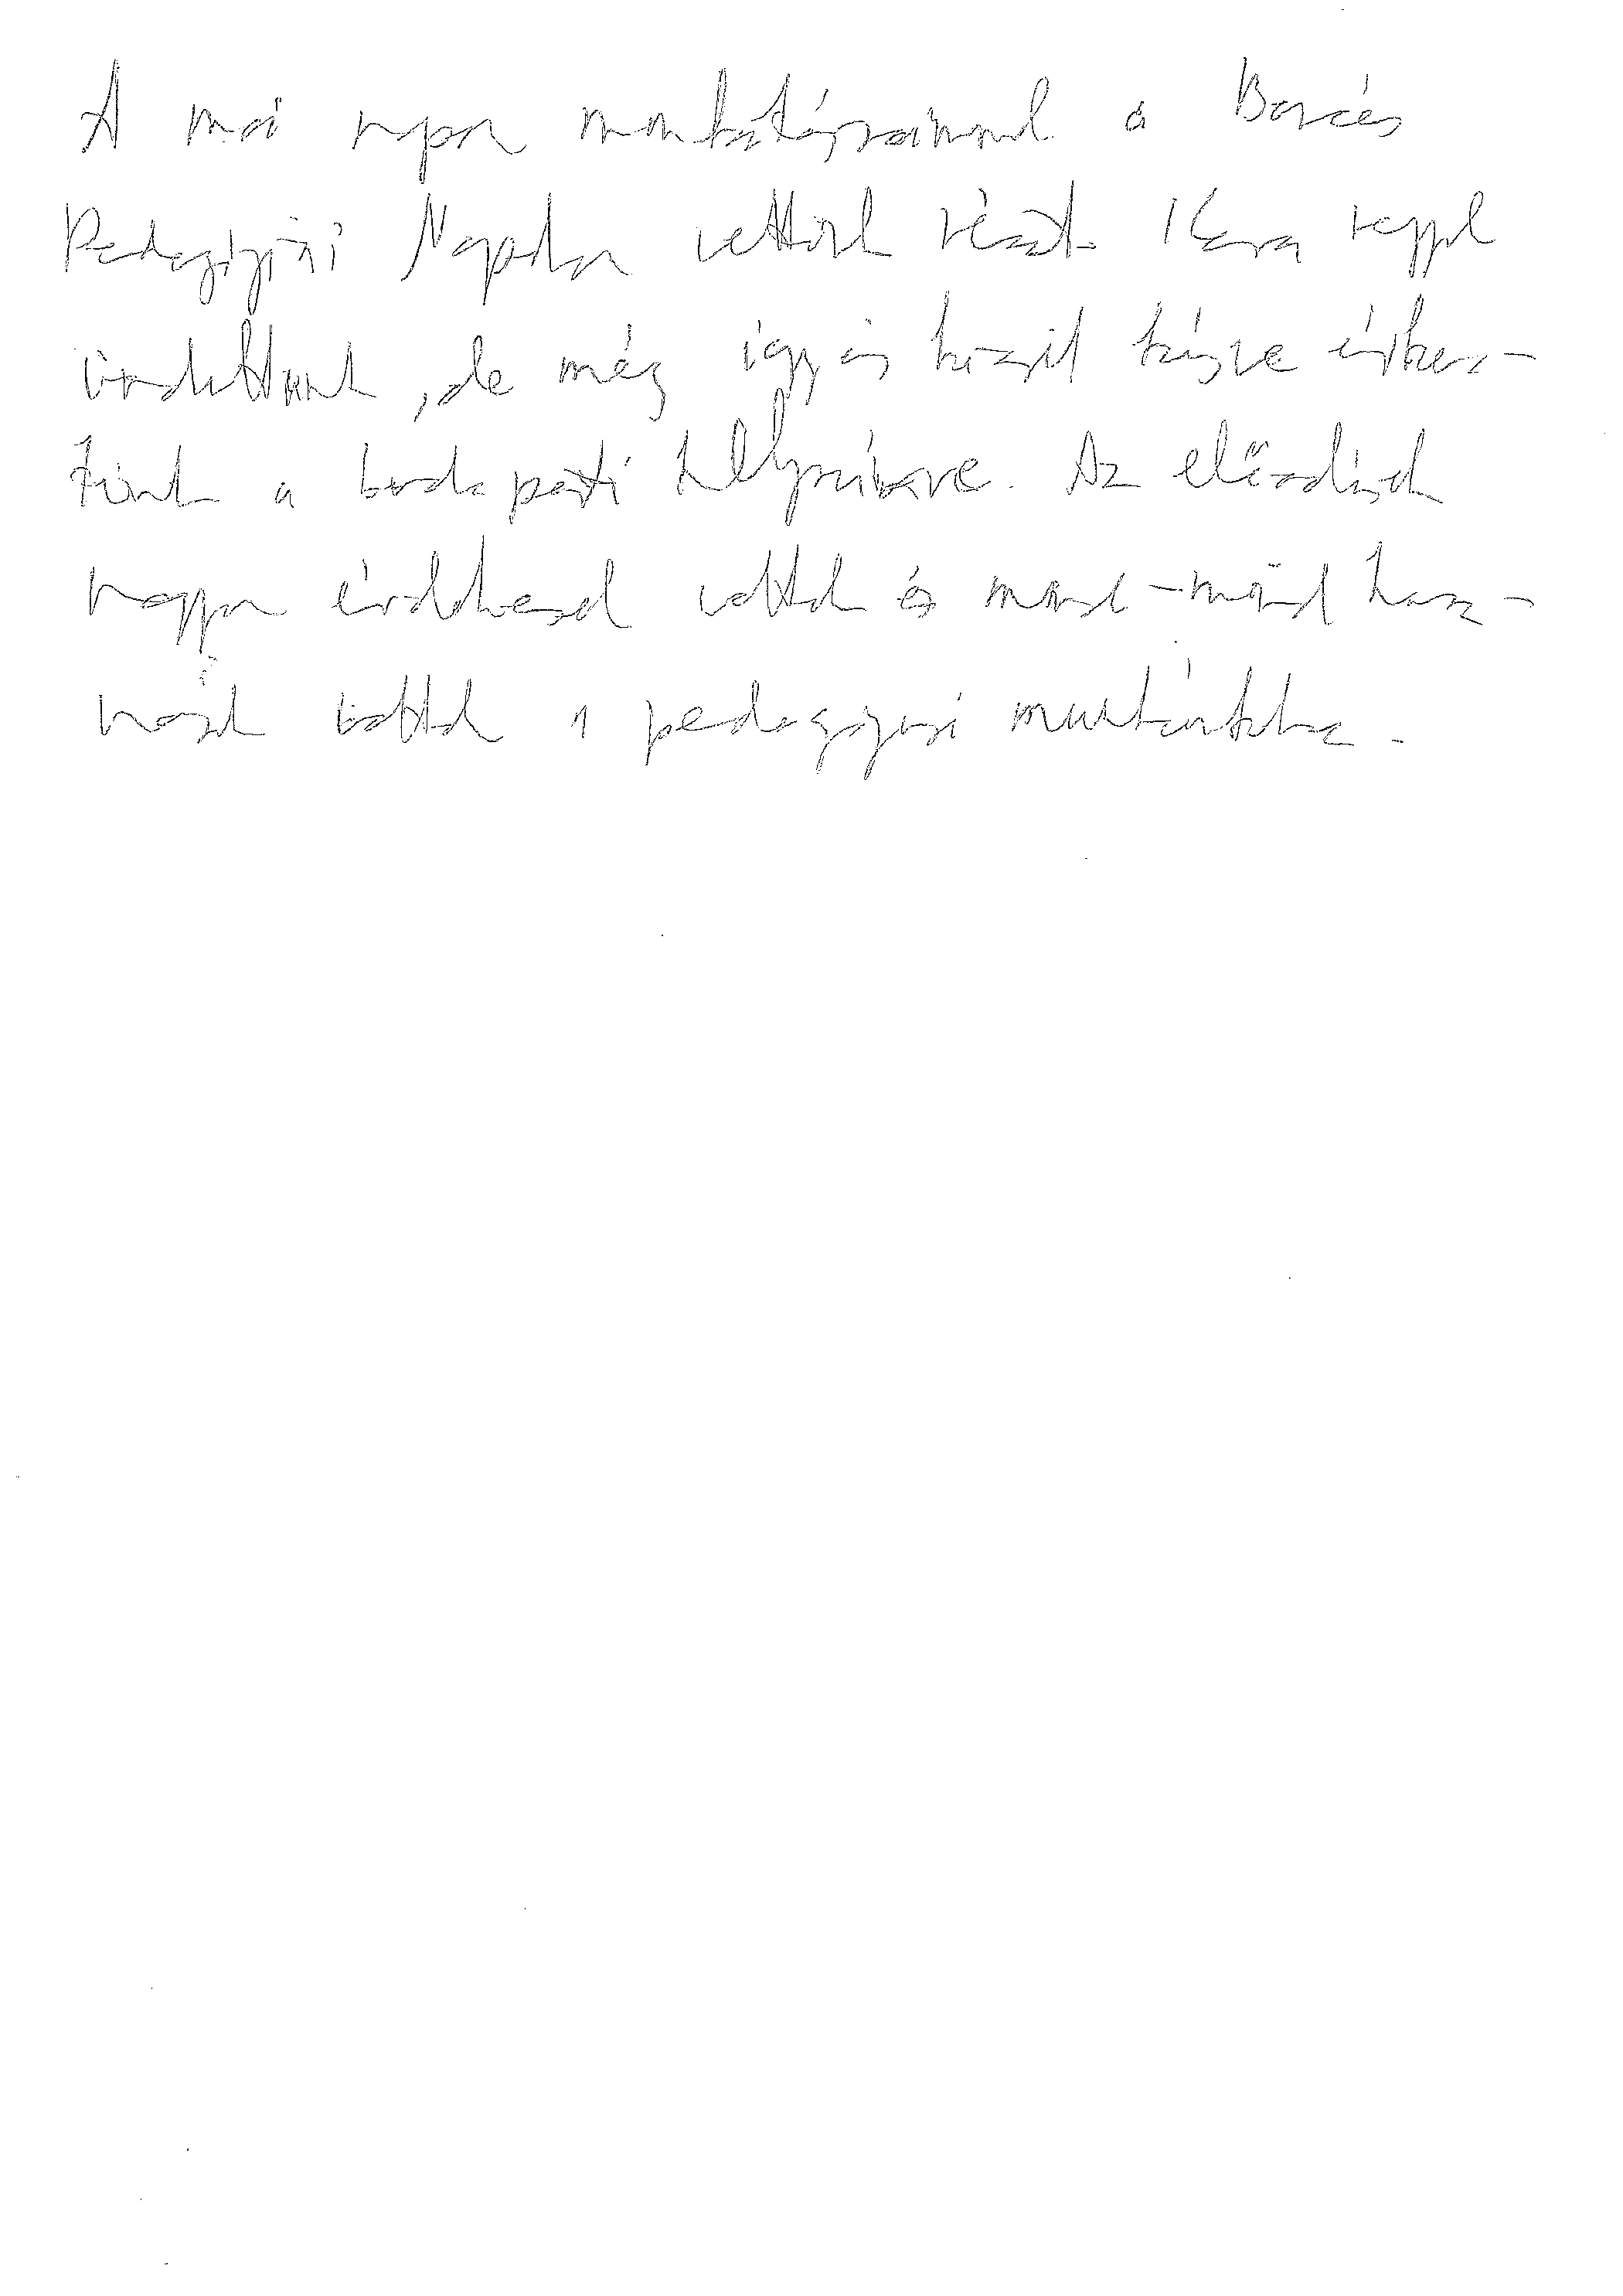 A mai napon munkatársaimmal a Bárczis
Pedagógiai Napokon vettünk részt. Kora reggel
indultunk, de még így is késve érkez-
tünk a budapesti helyszínre. Az előadások
nagyon érdekesek voltak és mind-mind hasz-
nosak voltak a pedagógiai munkánkba.